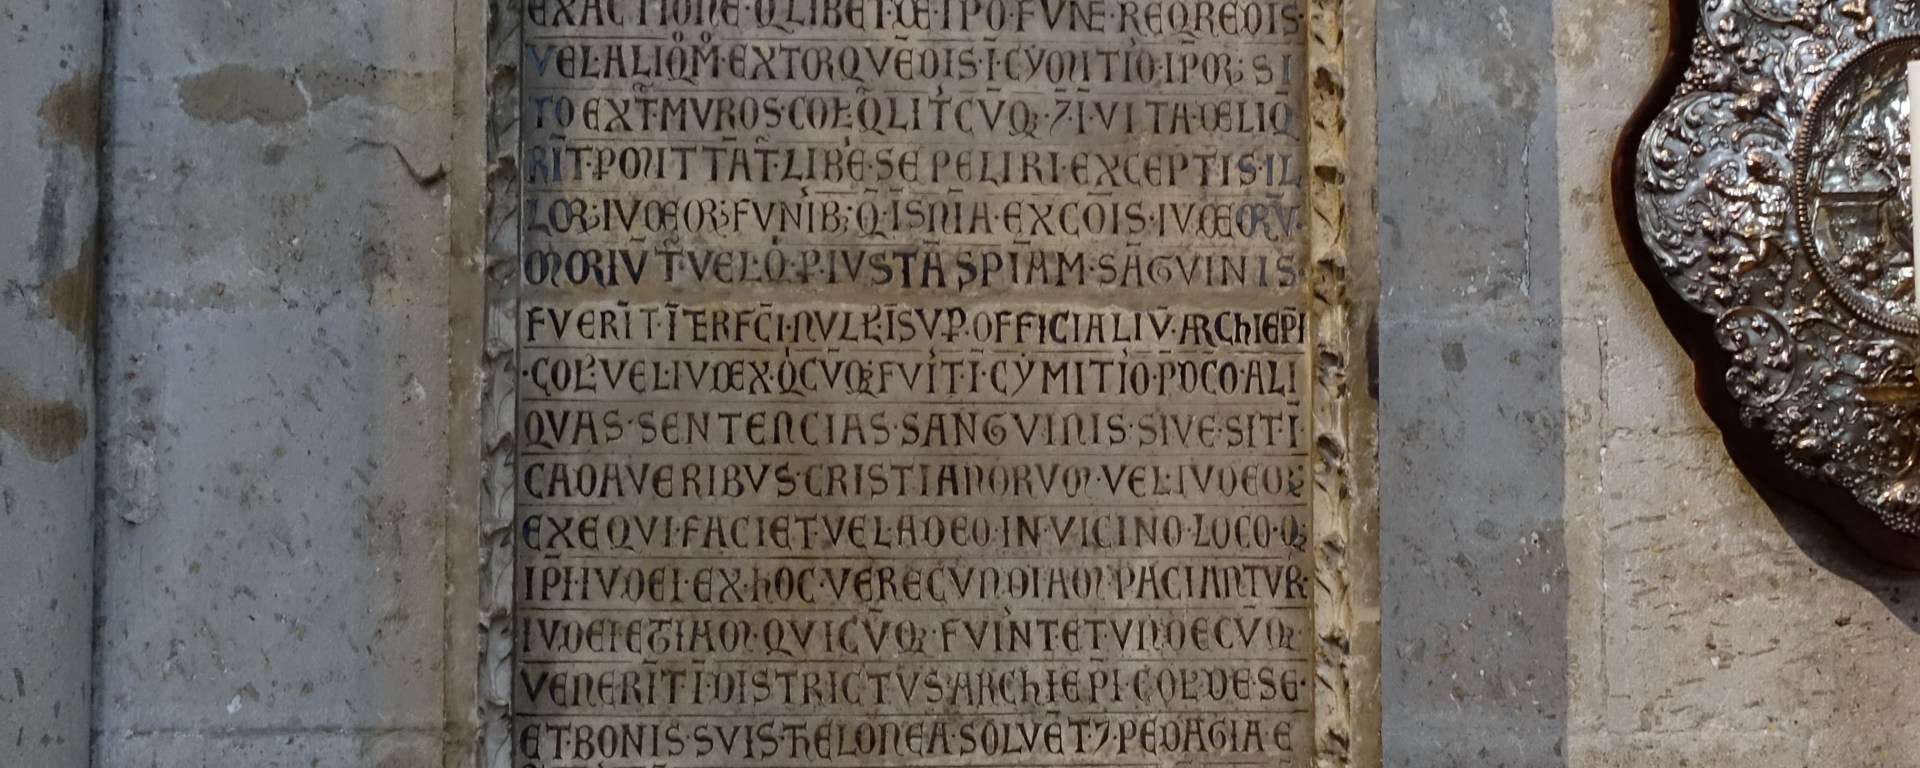 EXACTIONE·QLIBET·DE·IPO·FVNE·REQREDIS·
VEL·ALIQM·EXTORQVĒDIS·Ī·CYMITIO·IPOR·SI
TO EXT·MVROS·COL·QLITCVQ·7·I·VITA·DELIQ
RIT·PMITTAT·LIBE·SEPELIRI·EXCEPTIS·IL
LOR·IVDEOR·FVNIB;·Q·ISNIA·EXCOIS·IVDEORV·
MORIVT·VEL·Q·P·IVSTA SPIAM·SAGVINIS·
FVERIT·ITERFCI·NVLL·ISVP·OFFICIALIV·ARChIEPI
·COL·VEL·IVDEX·QCVQ·FVIT·I·CYMITIO·PDCO·ALI
QVAS·SENTENCIAS·SANGVINIS·SIVE·SITI·
CADAVERIBVS·CRISTIANORVM·VEL·IVDEOR
EXEQVI·FACIET·VEL·ADEO·IN·VICINO·LOCO·Q;
IPI·IVDEI·EX·hOC·VERECVNDIAM·PACIANTVR·
IVDEI·ETIAM·QVICVQ·FVINT·ET·VNDECVQ·
VENERIT·I·DISTRICTVS·ARChIEPI·COL·DE·SE·
ET·BONIS·SVIS·ThELONEA·SOLVET·7·PEDAGIA·E